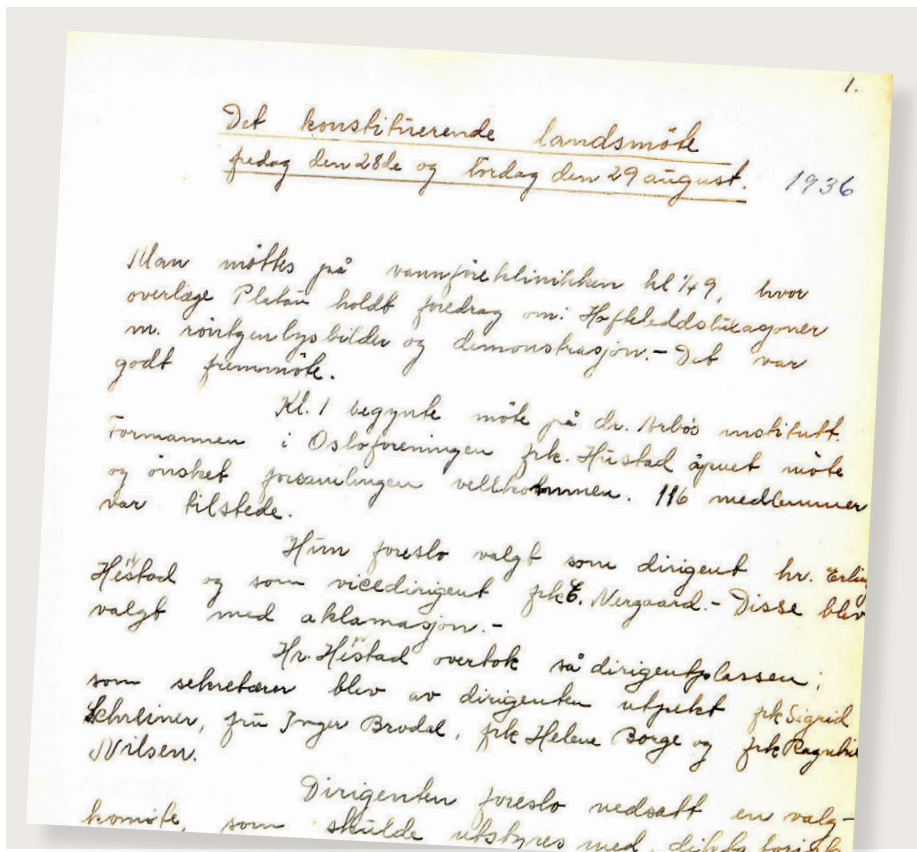 1.
Det konstituerende landsmöte
fredag den 28de og lördag den 29 august. 1936
Man möttes på vannföreklinikken kl ¼9, hvor
overlæge Platou holdt foredrag om: Hofteleddsluxasjoner
m. röntgenlysbilder og demonstrasjon.- Det var
godt fremmöte.
Kl. 1 begynte möte på dr. Arbos institutt.
Formannen i Osloforeningen frk. Hustad åpnet möte
og önsket forsamlingen vellkommen. 116 medlemmer
var tilstede.
Hun foreslo valgt som dirigent hr. Erling
Hustad og som vicedirigent frk E. Nergaard.- Disse blev
valgt med aklamasjon.-
Hr. Hustad overtok så dirigentplassen;
som sekretærer blev av dirigenten utpekt frk Sigrid
Schreiner, fru Inger Brodal, frk Helene Borge og frk Ragnhil
Nilsen.
Dirigenten foreslo nedsatt en valg-
komite, som skulde utstyres med